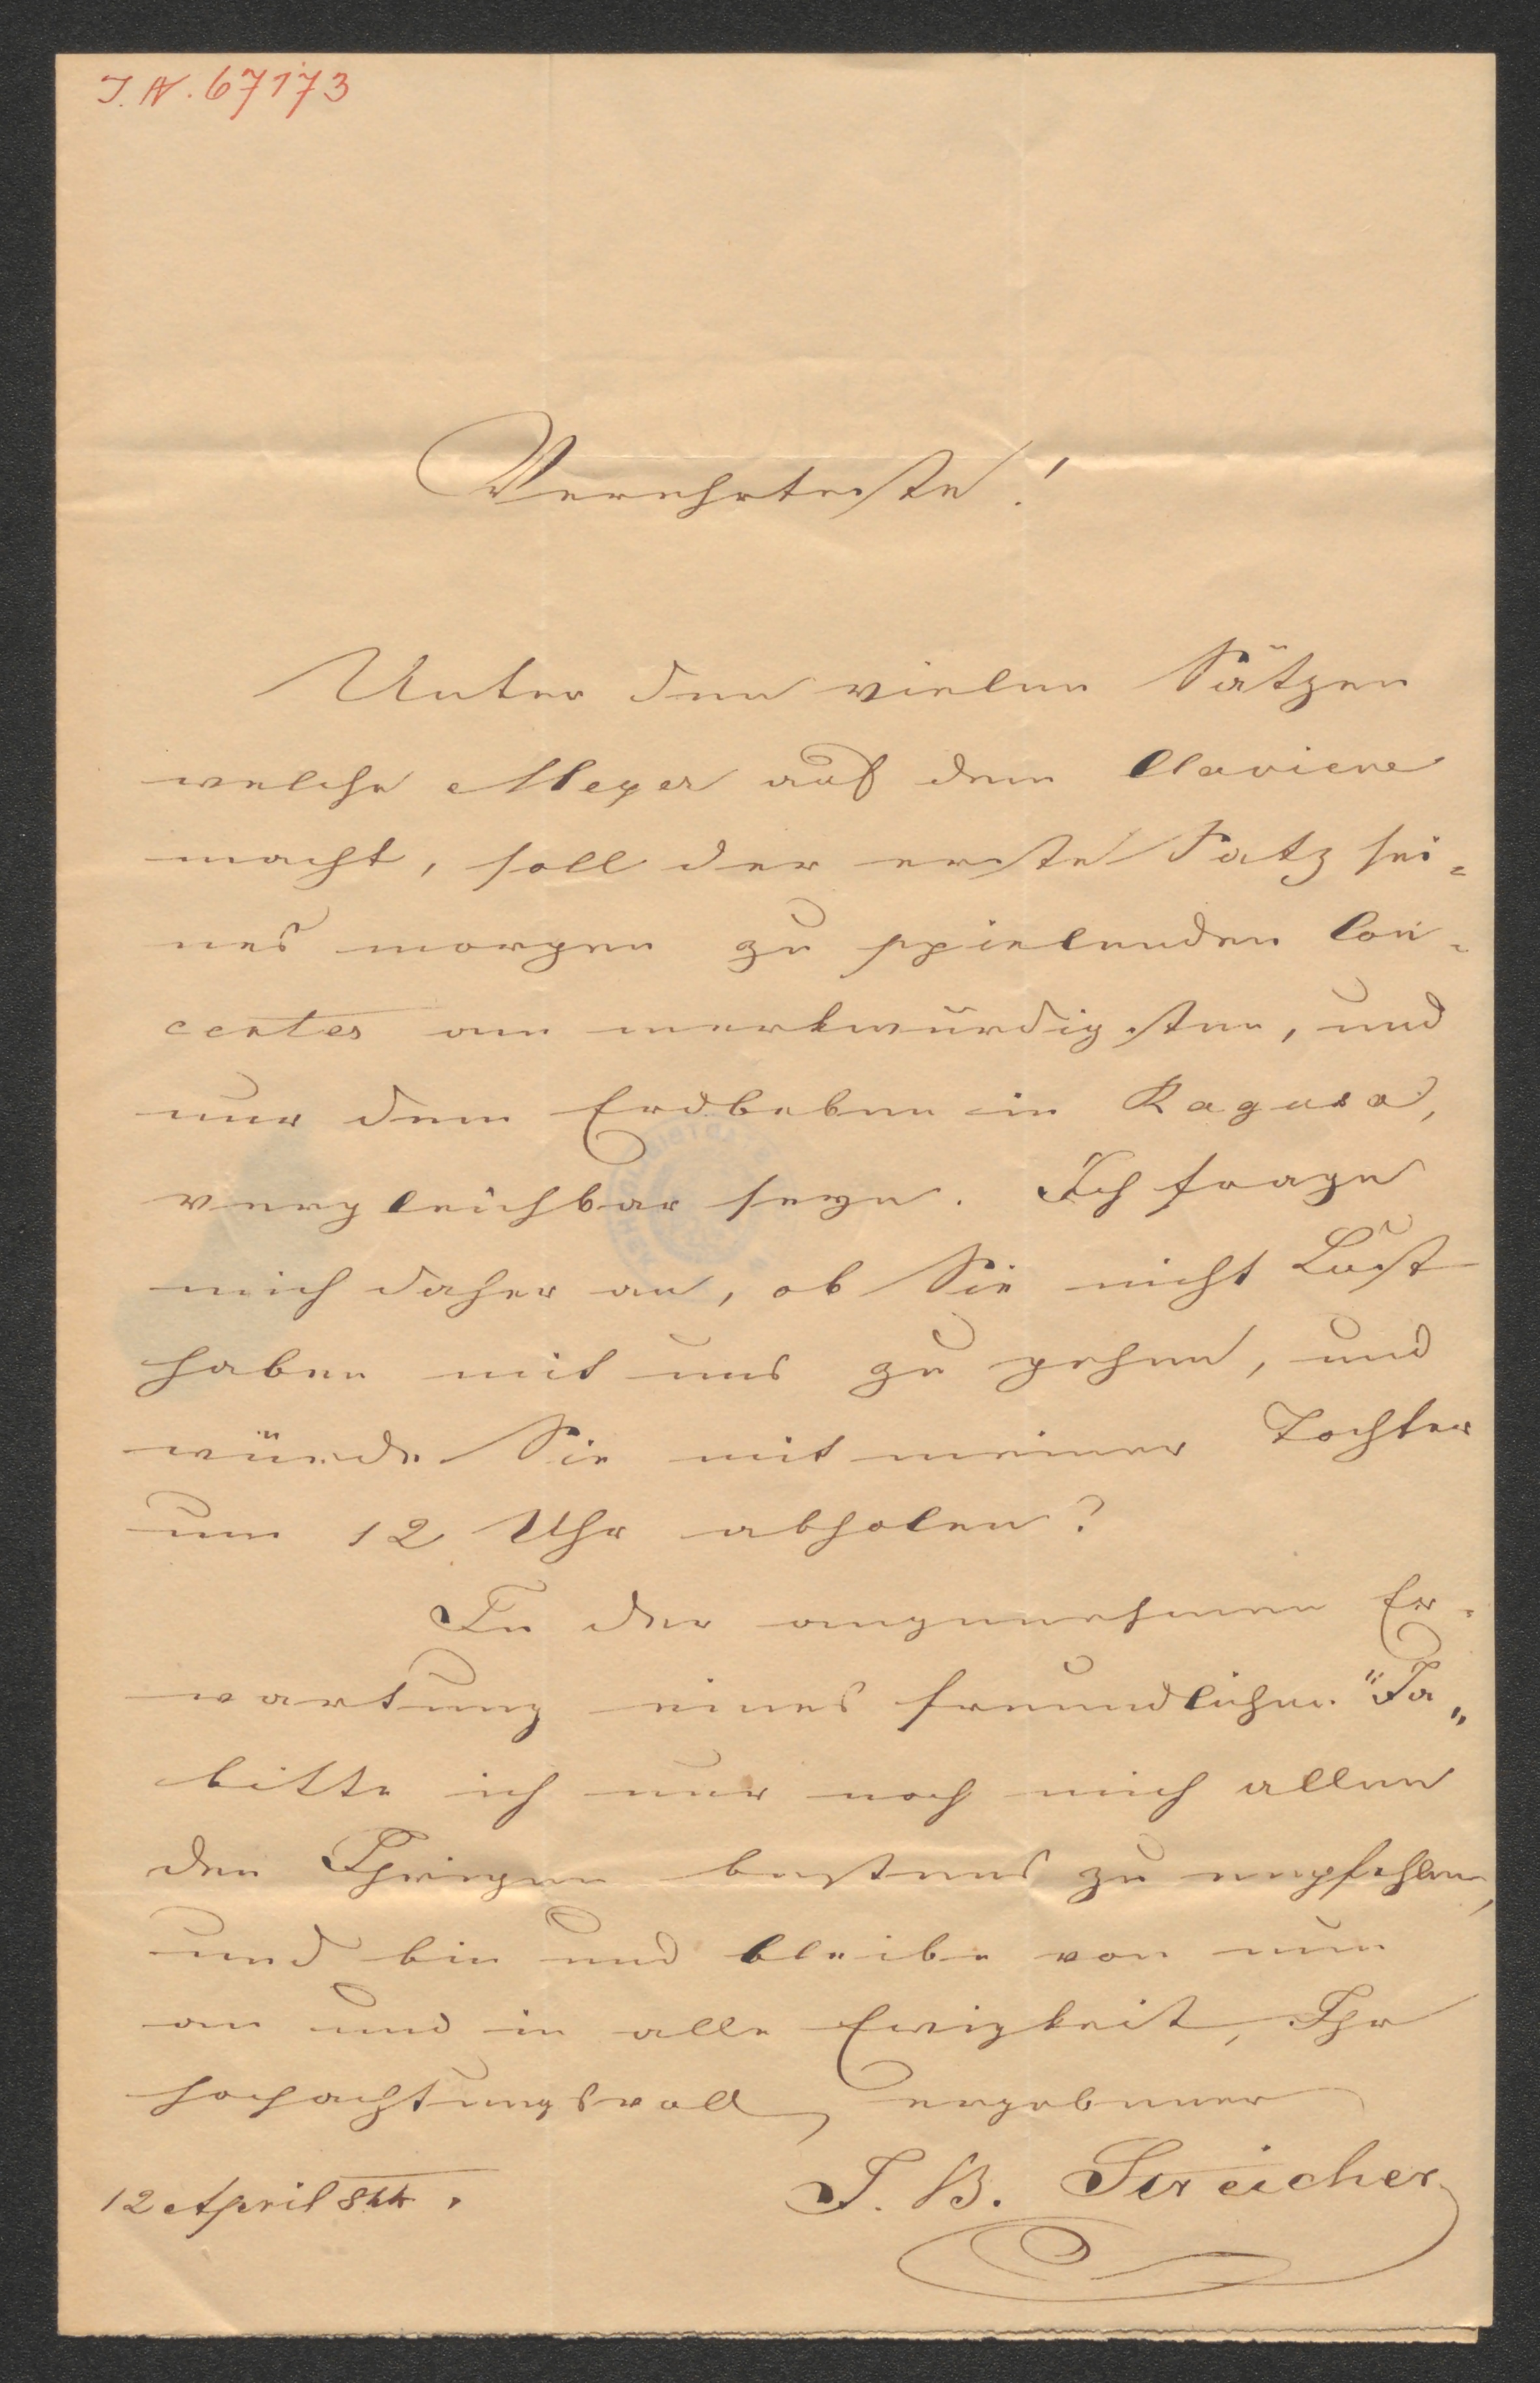 I. N. 67173
Verehrteste!
Unter den vielen Sätzen
welche Meyer auf dem Claviere
macht, soll der erste Satz sei=
nes morgen zu spielenden Con=
certes am merkwürdigsten, und
nur dem Erdbeben in Ragusa,
vergleichbar seyn. Ich frage
mich daher an, ob Sie nicht Lust
haben mit uns zu gehen, und
würde Sie mit meiner Tochter
um 12 Uhr abholen?
In der angenehmen Er=
wartung eines freundlichen "Ja„
bitte ich nur noch mich allen
den Ihrigen bestens zu empfehlen,
und bin und bleibe von nun
an und in alle Ewigkeit, Ihr
hochachtungsvoll ergebener
J. B. Streicher
12 April 844.